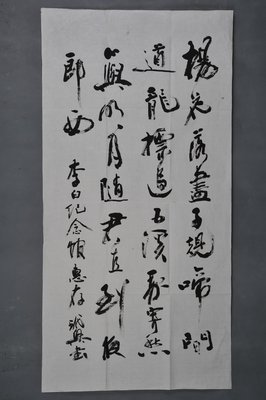 楊花落盡子規啼聞
道龍標過五溪我寄愁
心與明月隨君直到夜
郎西
李白纪念館惠存